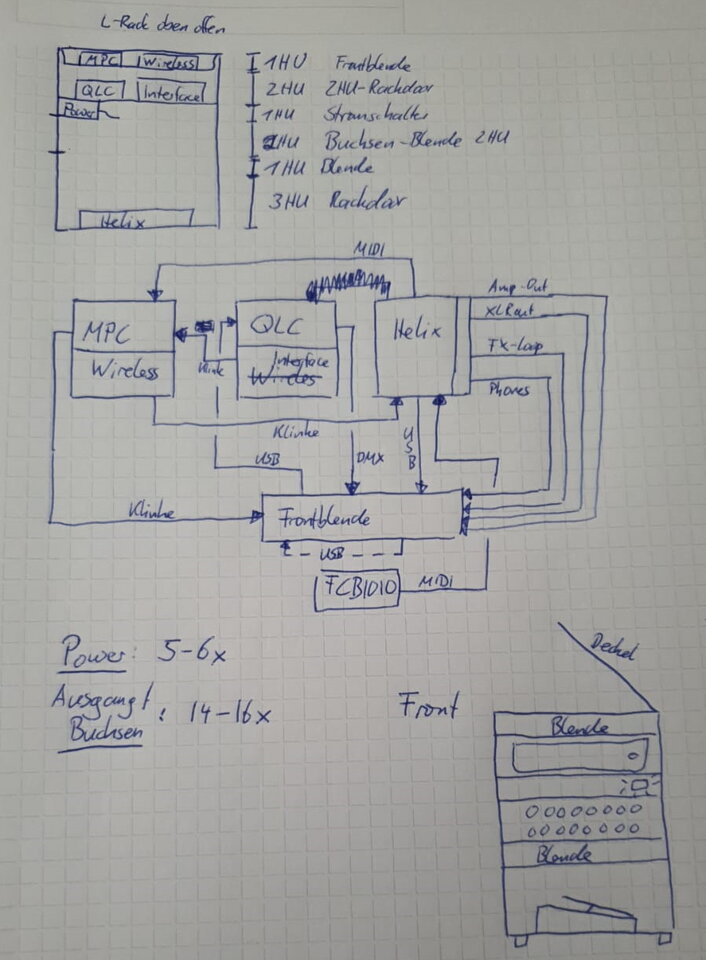 L-Rack oben offen
MPC Wireless
QLC Interface
Power
Helix
1HU Frontblende
2HU 2HU-Rackdoor
1HU Stromschalter
2HU Buchsen-Blende 2HU
1HU Blende
3HU Rackdoor
MIDI
MPC
Wireless
QLC
Interface
Helix
Amp-Out
XLRout
FX-Loop
Phones
Klink
Klinke
USB
DMX
USB
Klinke
Frontblende
USB
FCB1010
MIDI
Power: 5-6x
Ausgang/
Buchsen : 14-16x
Front
Deckel
Blende
Blende